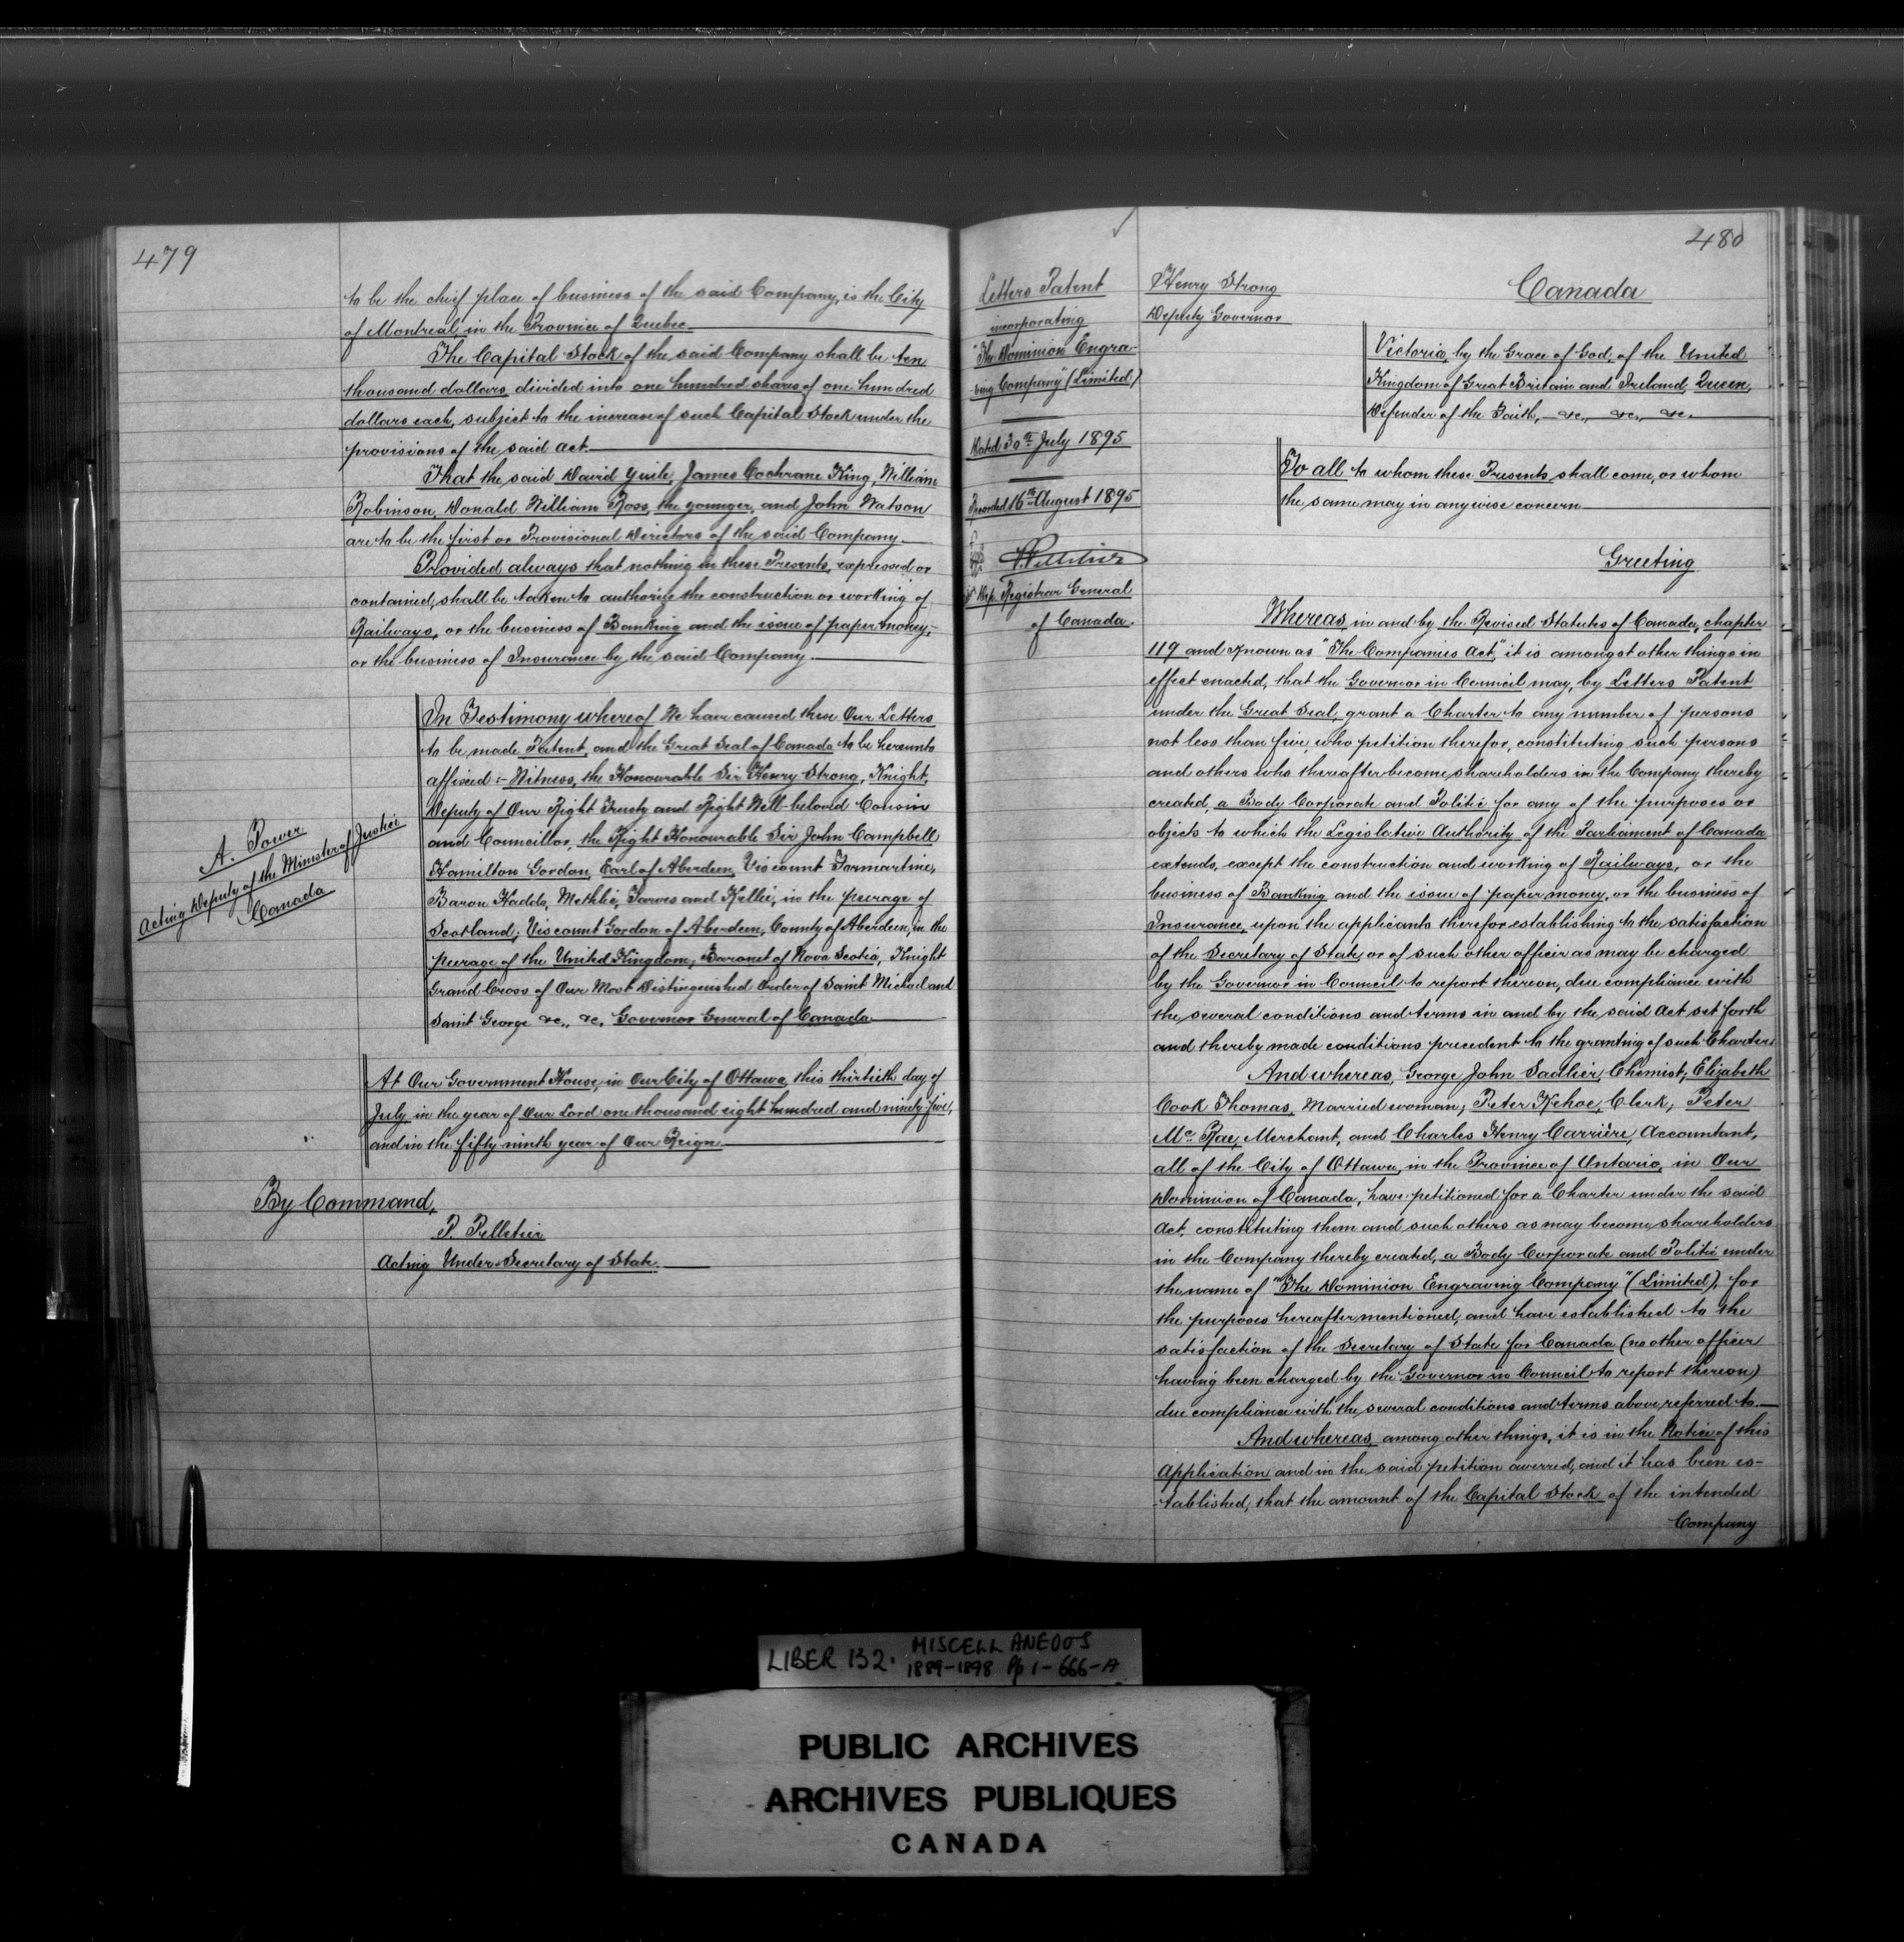 479
to be the chief place of business of the said Company, is the City
of Montreal in the Province of Quebec.
The Capital Stock of the said Company shall be ten
thousand dollars, divided into one hundred shares of one hundred
dollars each, subject to the increase of such Capital Stock under the
provisions of the said Act.
That the said David Yuile, James Cochrane King, William
Robinson, Donald William Ross, the younger, and John Watson
are to be the first or Provisional Directors of the said Company.
Provided always that nothing in these Presents, expressed or
contained, shall be taken to authorize the construction or working of
Railways, or the business of Banking and the issue of paper money,
or the business of Insurance by the said Company.
In Testimony whereof We have caused these Our Letters
to be made Patent, and the Great Seal of Canada to be hereunto
affixed:- Witness, the Honourable Sir Henry Strong, Knight,
Deputy of Our Right Trusty and Right Well-beloved Cousin
and Councillor, the Right Honourable Sir John Campbell
Hamilton Gordon, Earl of Aberdeen, Viscount Formartine,
Baron Haddo, Methlic, Tarves and Kellie, in the peerage of
Scotland; Viscount Gordon of Aberdeen, County of Aberdeen, in the
peerage of the United Kingdom; Baronet of Nova Scotia, Knight
Grand Cross of Our Most Distinguished Order of Saint Michael and
Saint George &c., &c. Governor General of Canada
A. Power
Acting Deputy of the Minister of Justice
Canada
At Our Government House, in Our City of Ottawa, this thirtieth day of
July, in the year of Our Lord one thousand eight hundred and ninety five,
and in the fifty ninth year of Our Reign.
By Command,
P. Pelletier
Acting Under-Secretary of State.
480
Letters Patent
incorporating
"The Dominion Engra-
ving Company" (Limited)
Dated 30th July 1895
Recorded 16th August 1895
P. Pelletier
Dep. Registrar General
of Canada.
Henry Strong
Deputy Governor
Canada
Victoria, by the Grace of God, of the United
Kingdom of Great Britain and Ireland, Queen,
Defender of the Faith, &c., &c., &c.
To all to whom these Presents shall come, or whom
the same may in anywise concern
Greeting
Whereas, in and by the Revised Statutes of Canada, chapter
119 and known as "The Companies Act," it is amongst other things in
effect enacted, that the Governor in Council may, by Letters Patent
under the Great Seal, grant a Charter to any number of persons
not less than five, who petition therefor, constituting such persons
and others who thereafter become shareholders in the Company thereby
created, a Body Corporate and Politic for any of the purposes or
objects to which the Legislative Authority of the Parliament of Canada
extends, except the construction and working of Railways, or the
business of Banking and the issue of paper money, or the business of
Insurance, upon the applicants therefor establishing to the satisfaction
of the Secretary of State, or of such other officer as may be charged
by the Governor in Council to report thereon, due compliance with
the several conditions and terms in and by the said Act set forth
and thereby made conditions precedent to the granting of such Charter.
And whereas, George John Sadlier, Chemist, Elizabeth
Cook Thomas, Married woman; Peter Kehoe, Clerk; Peter
Mc. Rae, Merchant, and Charles Henry Carrière, Accountant,
all of the City of Ottawa, in the Province of Ontario, in Our
Dominion of Canada, have petitioned for a Charter under the said
Act, constituting them and such others as may become shareholders
in the Company thereby created, a Body Corporate and Politic under
the name of "The Dominion Engraving Company" (Limited), for
the purposes hereafter mentioned, and have established to the
satisfaction of the Secretary of State for Canada (no other officer
having been charged by the Governor in Council to report thereon)
due compliance with the several conditions and terms above referred to.
And whereas, among other things, it is in the Notice of this
Application and in the said petition averred, and it has been es-
-tablished, that the amount of the Capital Stock of the intended
Company
LIBER 132. MISCELLANEOUS
1889-1898 Pp 1-666-A
PUBLIC ARCHIVES
ARCHIVES PUBLIQUES
CANADA